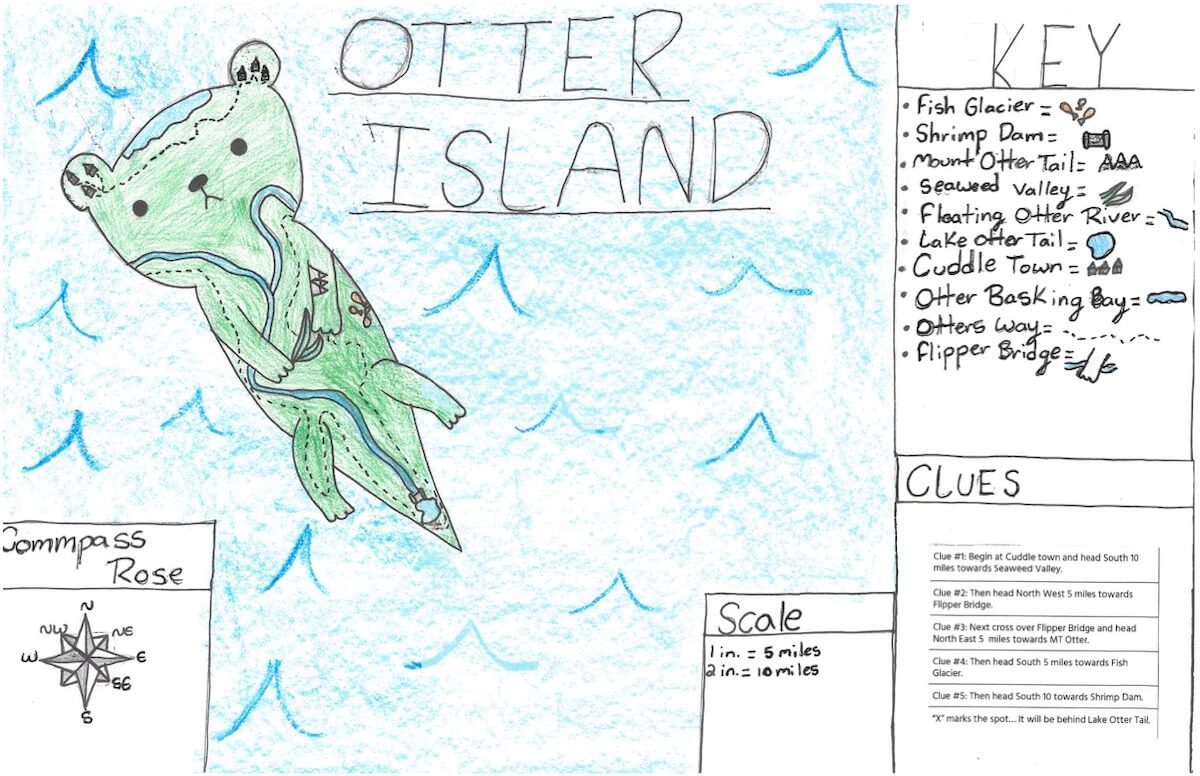 OTTER
ISLAND
KEY
• Fish Glacier =
• Shrimp Dam =
• Mount Otter Tail =
• Seaweed Valley =
• Floating Otter River =
• Lake Otter Tail =
• Cuddle Town =
• Otter Basking Bay =
• Otters Way =
• Flipper Bridge =
CLUES
Clue #1: Begin at Cuddle town and head South 10
miles towards Seaweed Valley.
Clue #2: Then head North West 5 miles towards
Flipper Bridge.
Clue #3: Next cross over Flipper Bridge and head
North East 5 miles towards MT Otter.
Clue #4: Then head South 5 miles towards Fish
Glacier.
Clue #5: Then head South 10 towards Shrimp Dam.
"X" marks the spot... It will be behind Lake Otter Tail.
Commpass
Rose
N
NW NE
W E
SE
S
Scale
1 in. = 5 miles
2 in. = 10 miles